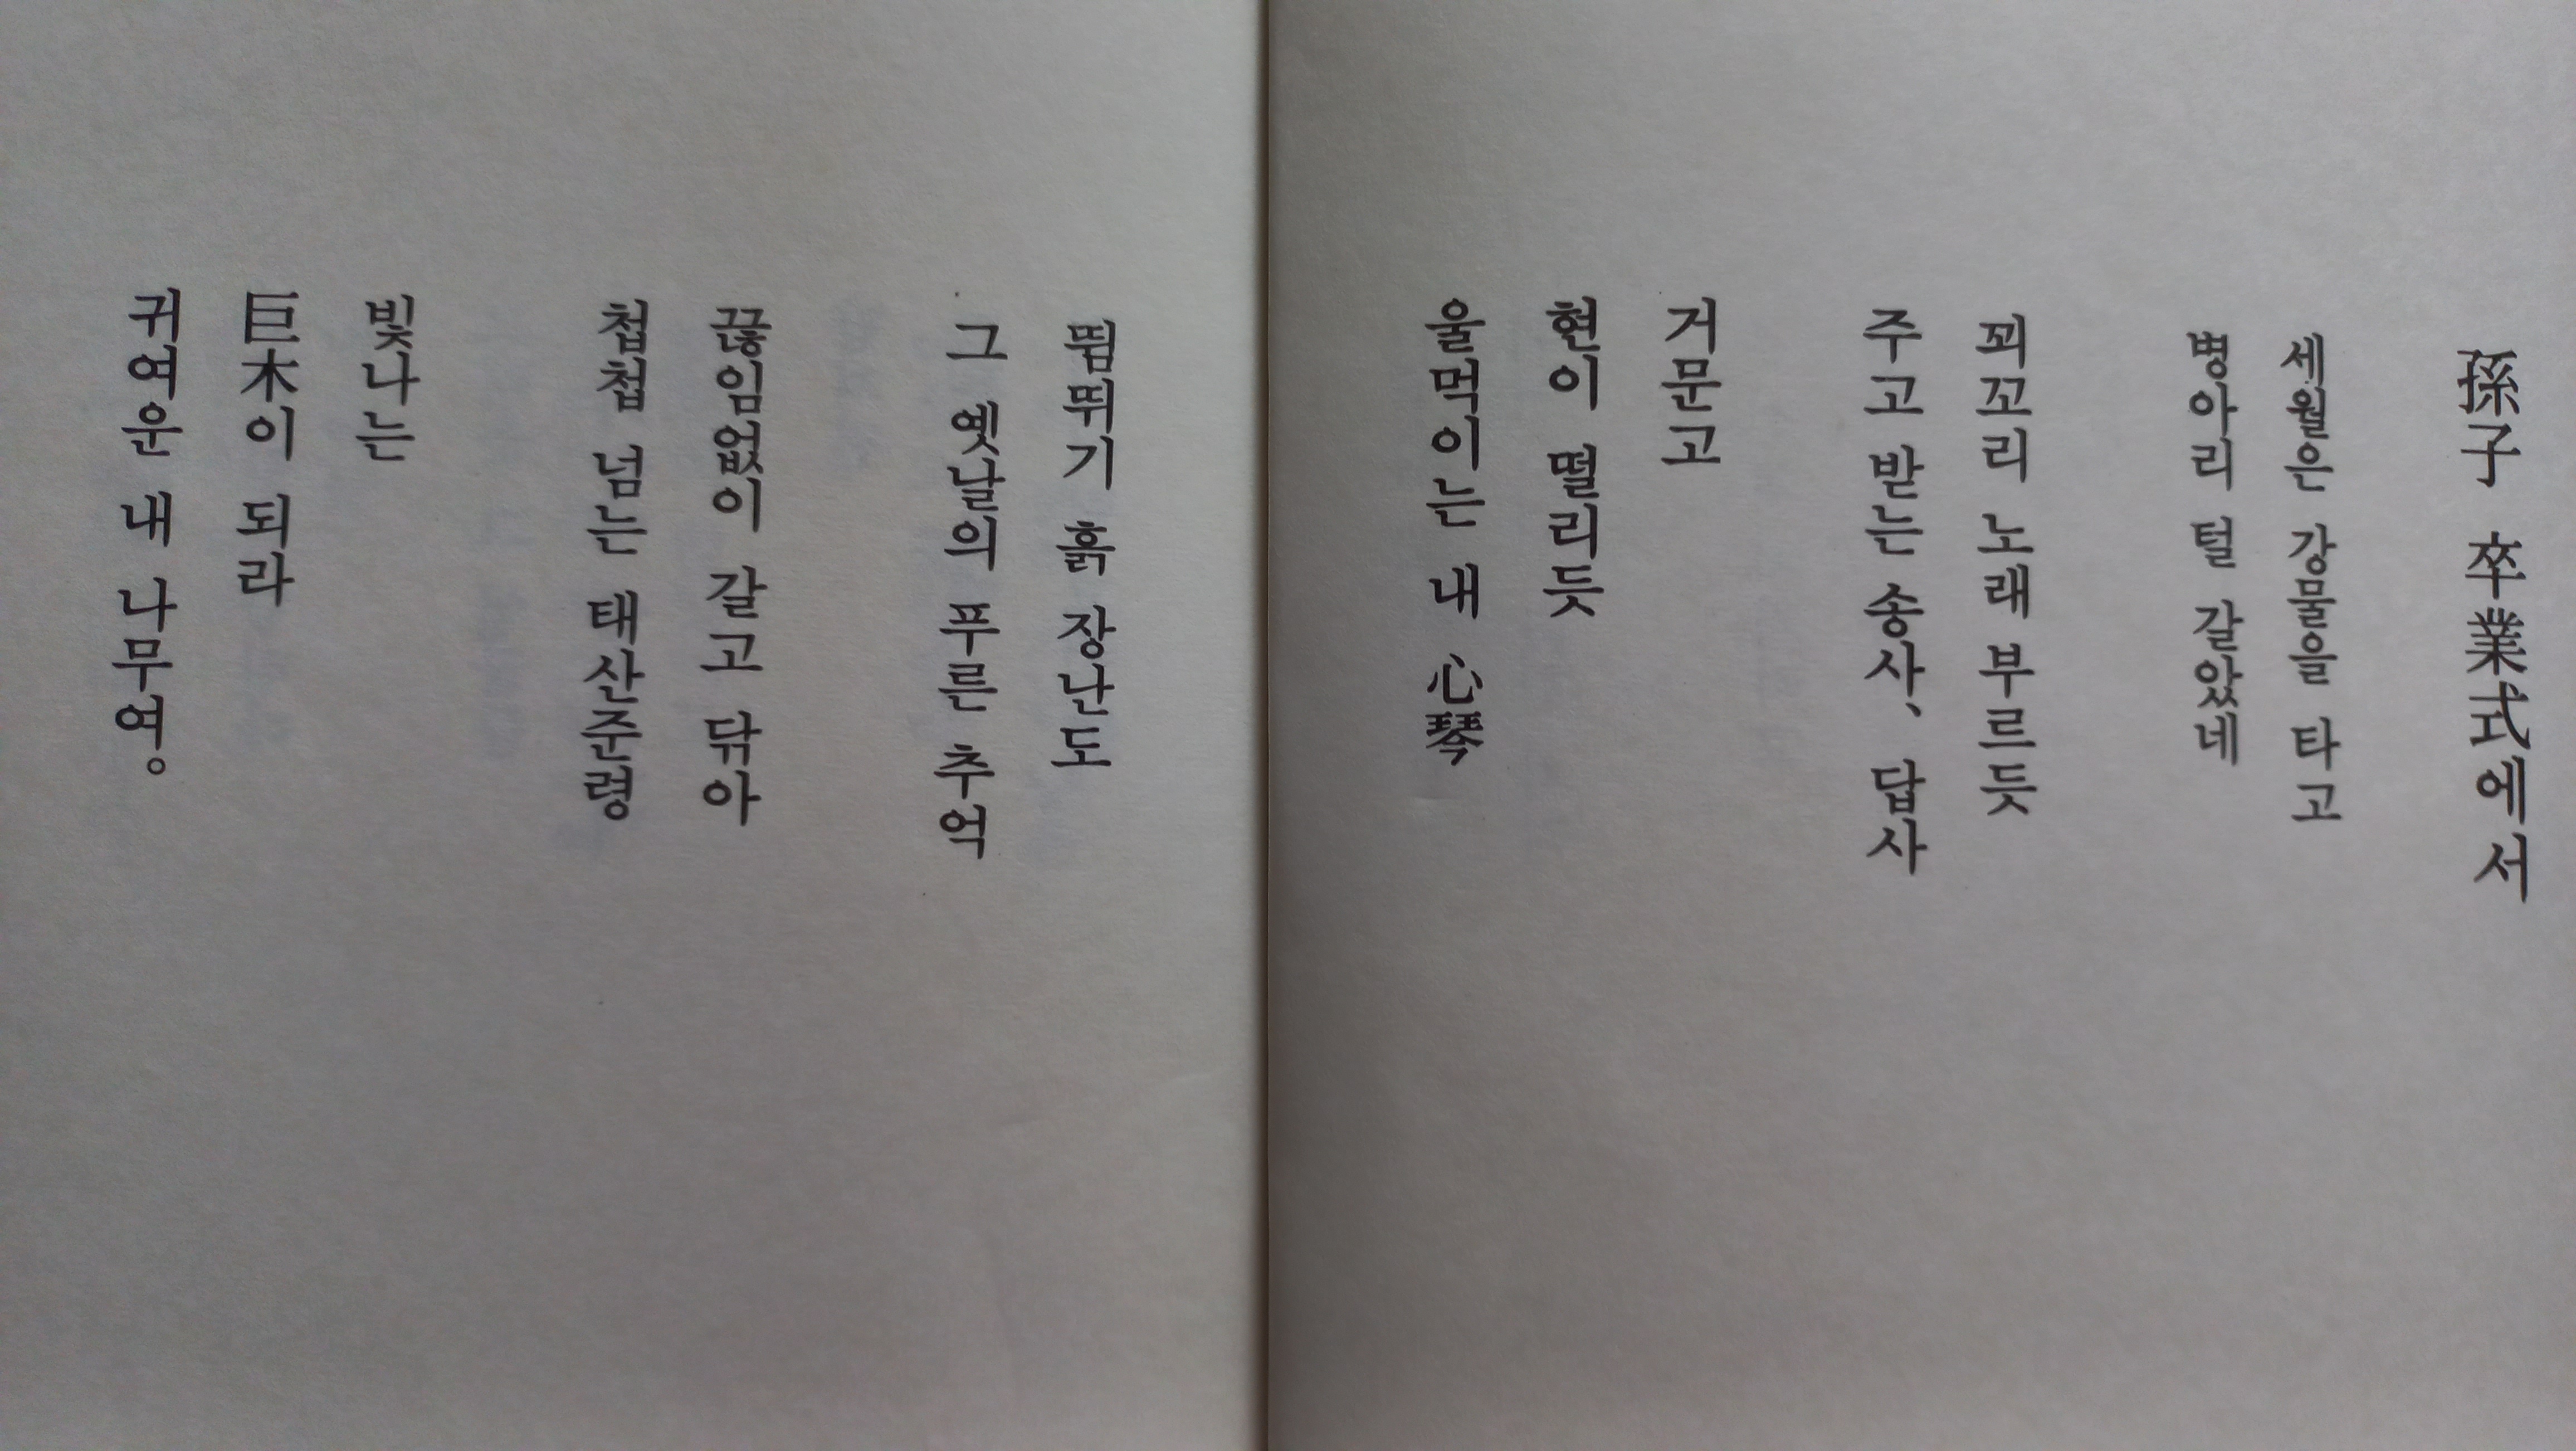 孫子 卒業式에서
세월은 강물을 타고
병아리 털 갈았네
꾀꼬리 노래 부르듯
주고 받는 송사、 답사
거문고
현이 떨리듯
울먹이는 내 心琴
뜀뛰기 흙 장난도
그 옛날의 푸른 추억
끊임없이 갈고 닦아
첩첩 넘는 태산준령
빛나는
巨木이 되라
귀여운 내 나무여。